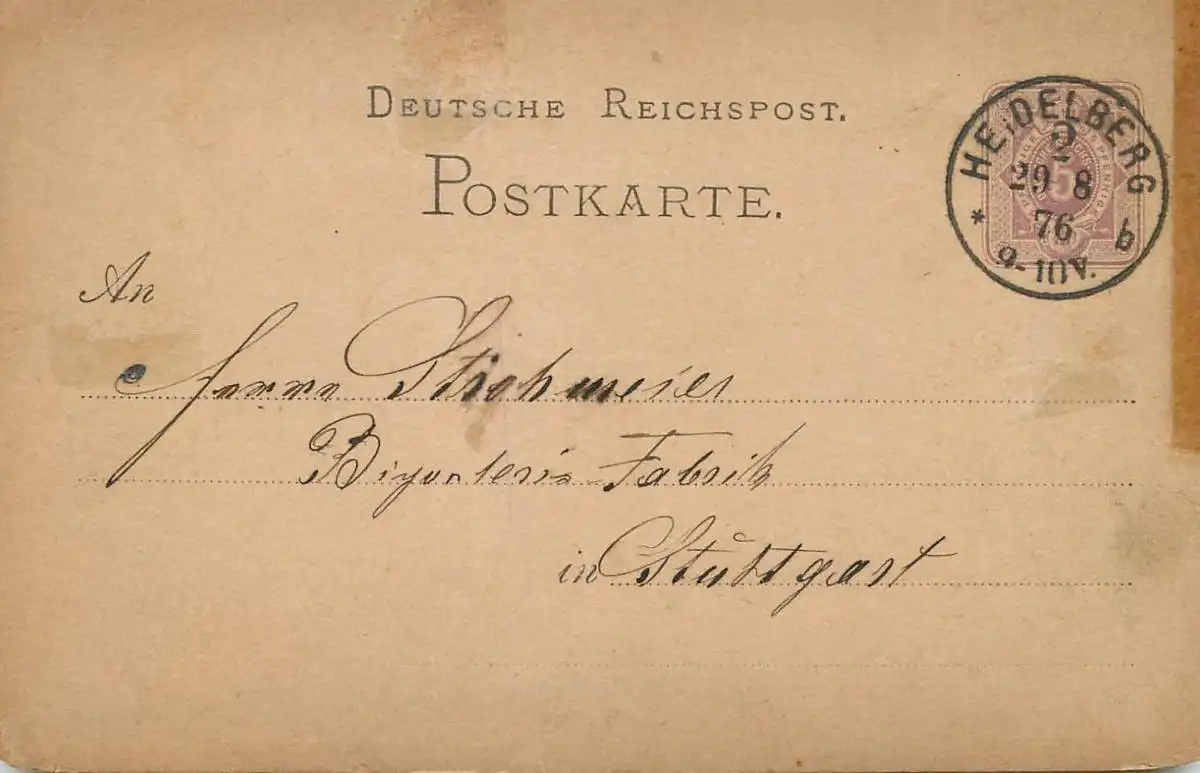 DEUTSCHE REICHSPOST.
POSTKARTE.
HEIDELBERG
2
29 8
76
9-10V.
* b
5
An
Herrn Strohmeier
Bijouterie-Fabrik
in Stuttgart